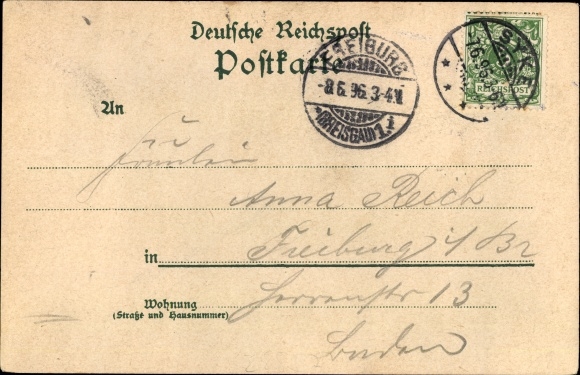 Deutsche Reichspost
Postkarte
FREIBURG
-8.6.96.3-4N.
*(BREISGAU)1.*
SYKE
REICHSPOST
An
Fräulein
Anna Reich
in Freiburg i/Br
Wohnung
(Straße und Hausnummer)
Herrenstr 13
Baden